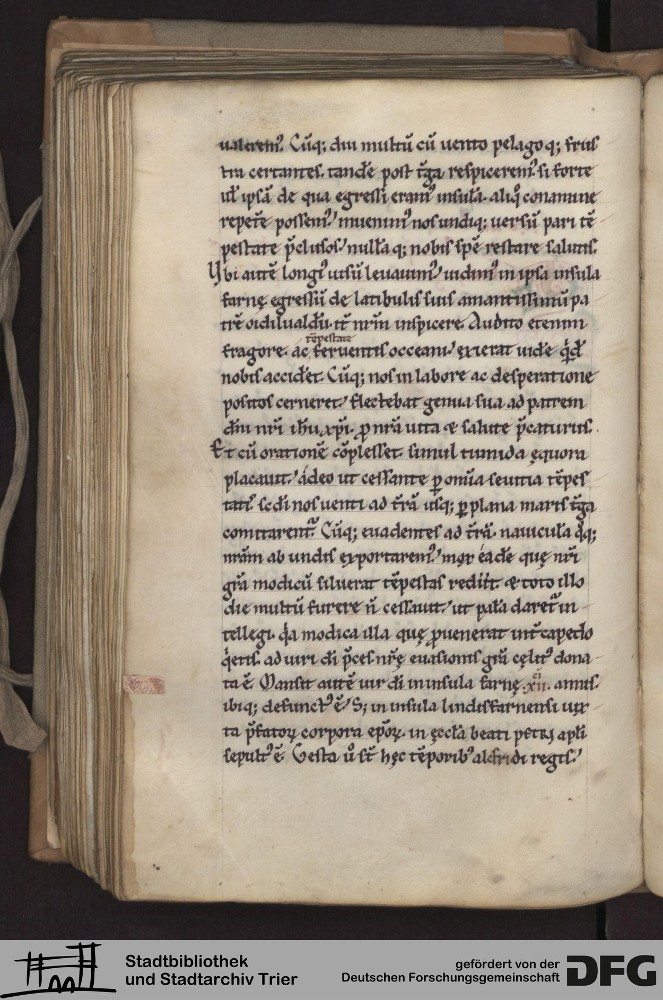 ualerem᷒. Cūq; diu multū cū uento pelagoq; frus
tra certantes. tandē post t̄ga respicerem᷒. si forte
ul̄ ipsā de qua egressi eram᷒ insulā. aliq̊ conamine
repet̄e possem᷒ / inuenim᷒ nos undiq; uersū pari tē
pestate p̄clusos / nullāq; nobis spē restare salutis.
Ubi autē longi᷒ uisū leuauim᷒ / uidim᷒ in ipsa insula
farnę egressū de latibulis suis amantissimū pa
trē oidilualdū. it̄ nr̄m inspicere. Audito etenim
tēpestate
fragore. ac feruentis occeani / exierat uidē qͥd
nobis accidēt. Cūq; nos in labore ac desperatione
positos cerneret / flectebat genua sua ad patrem
dn̄i nr̄i ih̄u xp̄i. ꝓ nr̄a uita & salute p̄caturus.
Et cū orationē cōplesset. simul tumida ęquora
placauit. adeo ut cessante ꝑ omīa seuitia tēpes
tatī scd̄i nos uenti ad t̄rā usq; ꝑ plana maris t̄ga
comitarent᷑. Cūq; euadentes ad t̄rā. nauiculā q̊q;
nr̄am ab undis exportarem᷒ / mox eadē quę nr̄i
grā modicū siluerat tēpestas rediit. & toto illo
die multū furere n̄ cessauit / ut palā daret᷑ in
tellegi. qͣa modica illa quę ꝓuenerat int̄capedo
qͥetis. ad uiri dī p̄ces. nr̄ę euasionis grā cęlit᷒ dona
ta ē. Mansit autē uir dī in insula farnę .xii. annis.
ibiq; defunct᷒ ē / S; in insula lindisfarnensi iux
ta p̄fatoꝝ corpora ep̄oꝝ. in ęccl̄a beati petri ap̄li
sepult᷒ ē. Gesta ū s̄t hęc tēporib᷒ alcfridi regis /
Stadtbibliothek
und Stadtarchiv Trier
gefördert von der
Deutschen Forschungsgemeinschaft
DFG